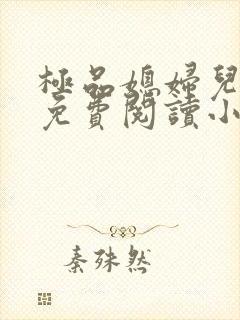 極品媳婦兒
免費閱讀小
秦殊然